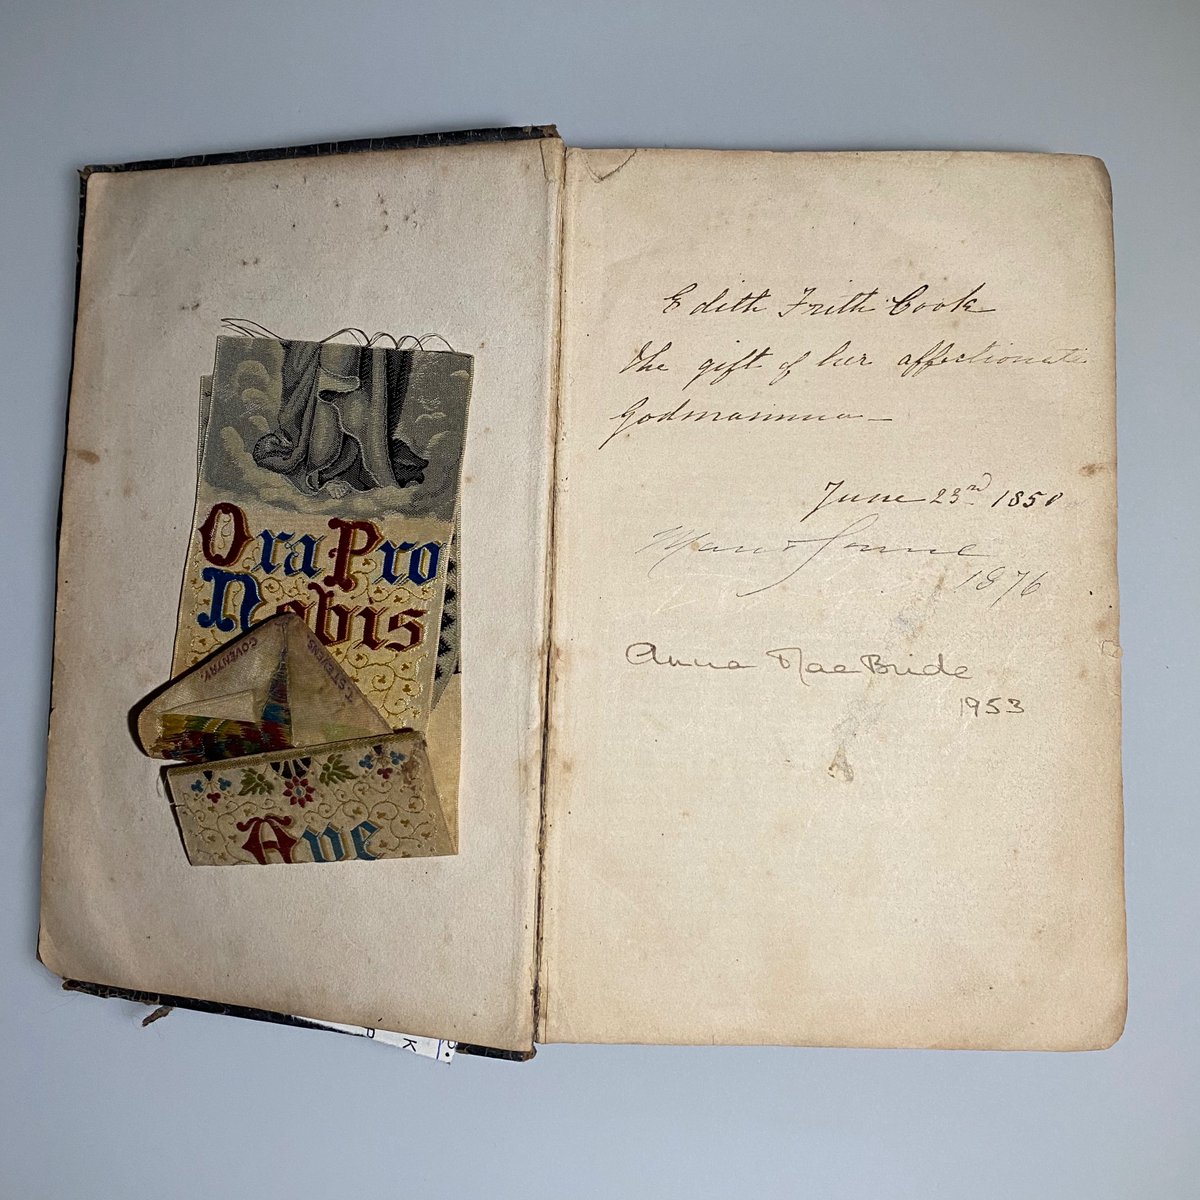 Ora Pro
Nobis
COVENTRY.
T. STEVENS.
Ave
Edith Frith Cook
The gift of her affectionate
Godmamma—
June 23rd 1850
1876
Anna MacBride
1953